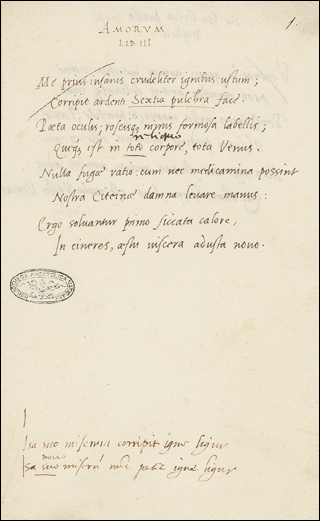 1.
AMORVM
LIB III
Me prius insanis crudeliter ignibus ustum;
Corripit ardenti Sextia pulchra face.
Pæta oculis, roseisq; nimis formosa labellis;
reliquo
Quęq; est in toto corpore, tota Venus.
Nulla fugæ ratio: cum nec medicamina possint
Nostra Citeinæ damna levare manus:
Ergo solvantur primo siccata calore,
In cineres, æstu viscera adusta novo.
suo corripit igne
novo
suo petit igne